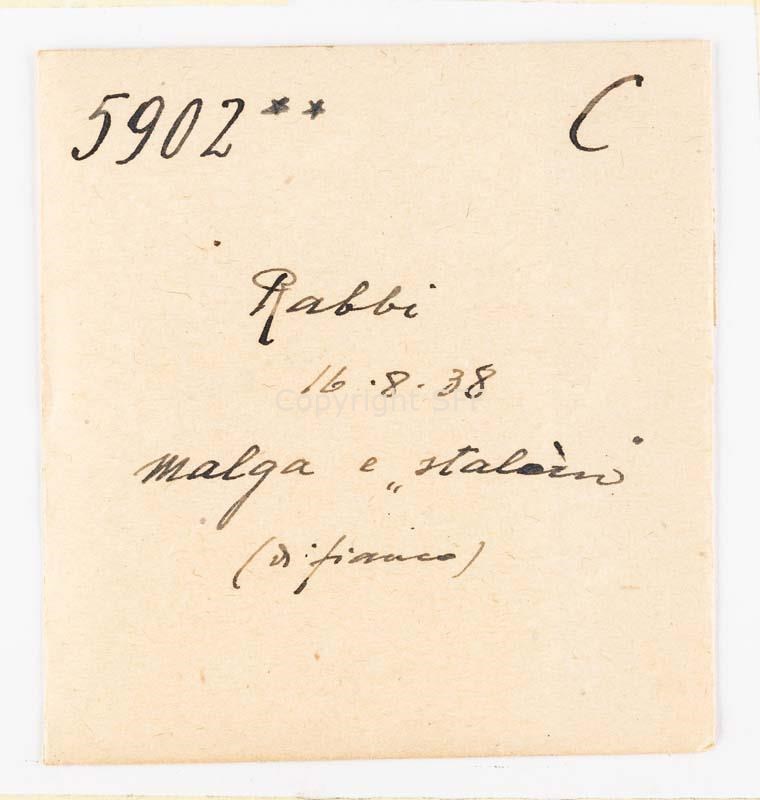 5902** C
Rabbi
16.8.38
Copyright SFT
malga e „stalèin"
(di fianco)